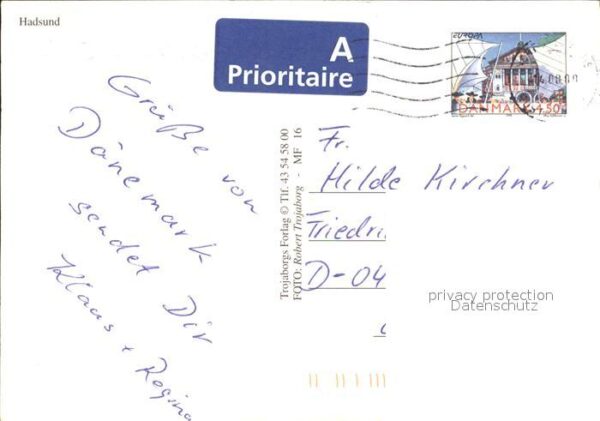 Hadsund
A
Prioritaire
EUROPA
DANMARK 4.50
Grüße von
Dänemark
sendet Dir
Klaus + Regina
Trojaborgs Forlag © Tlf. 43 54 58 00
FOTO: Robert Trojaborg - MF 16
Fr.
Hilde Kirchner
Friedri
D-04
privacy protection
Datenschutz